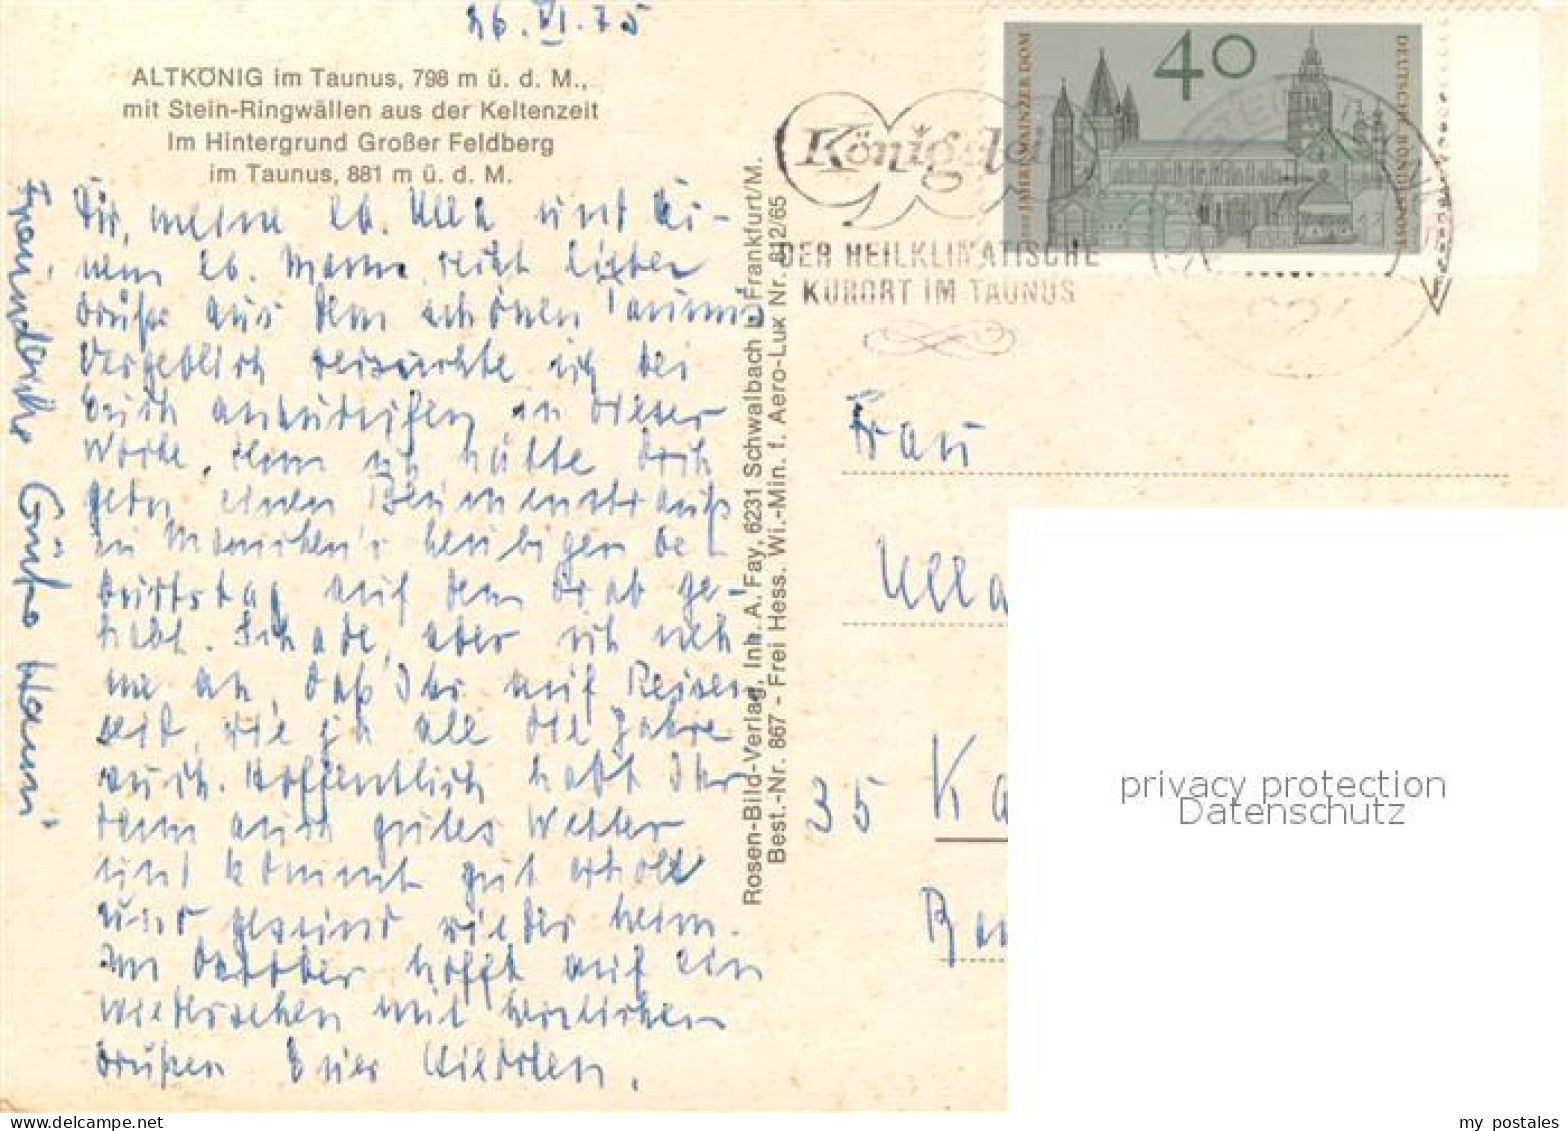 26. VI. 75
ALTKÖNIG im Taunus, 798 m ü. d. M.,
mit Stein-Ringwällen aus der Keltenzeit
Im Hintergrund Großer Feldberg
im Taunus, 881 m ü. d. M.
Dir, meine lb. Ulla und Dei-
nem lb. Mann, recht liebe
Grüße aus dem schönen Taunus
Vergeblich versuchte ich bei
Euch anzurufen in dieser
Woche, denn ich hätte Dich
gern einen Blumenstrauß
zu heutigen Ge-
burtstag auf dem Grab ge-
habt. Schade, aber ich neh
me an, daß Ihr auf Reisen
seid, wie ja all die Jahre
auch. Hoffentlich habt Ihr
dann auch gutes Wetter
und kommt gut erholt
und gesund wieder heim.
Im Oktober hofft auf ein
Wiedersehen mit herzlichen
Grüßen Euer
Freundliche Grüße Hanni
Rosen-Bild-Verlag, Inh. A. Fay, 6231 Schwalbach b. Frankfurt/M.
Best.-Nr. 867 - Frei Hess. Wi.-Min. f. Aero-Lux Nr. 812/65
Königstein
DER HEILKLIMATISCHE
KURORT IM TAUNUS
40
1000 JAHRE MAINZER DOM
DEUTSCHE BUNDESPOST
624
Frau
Ulla
35 Ka
privacy protection
Datenschutz
my postales